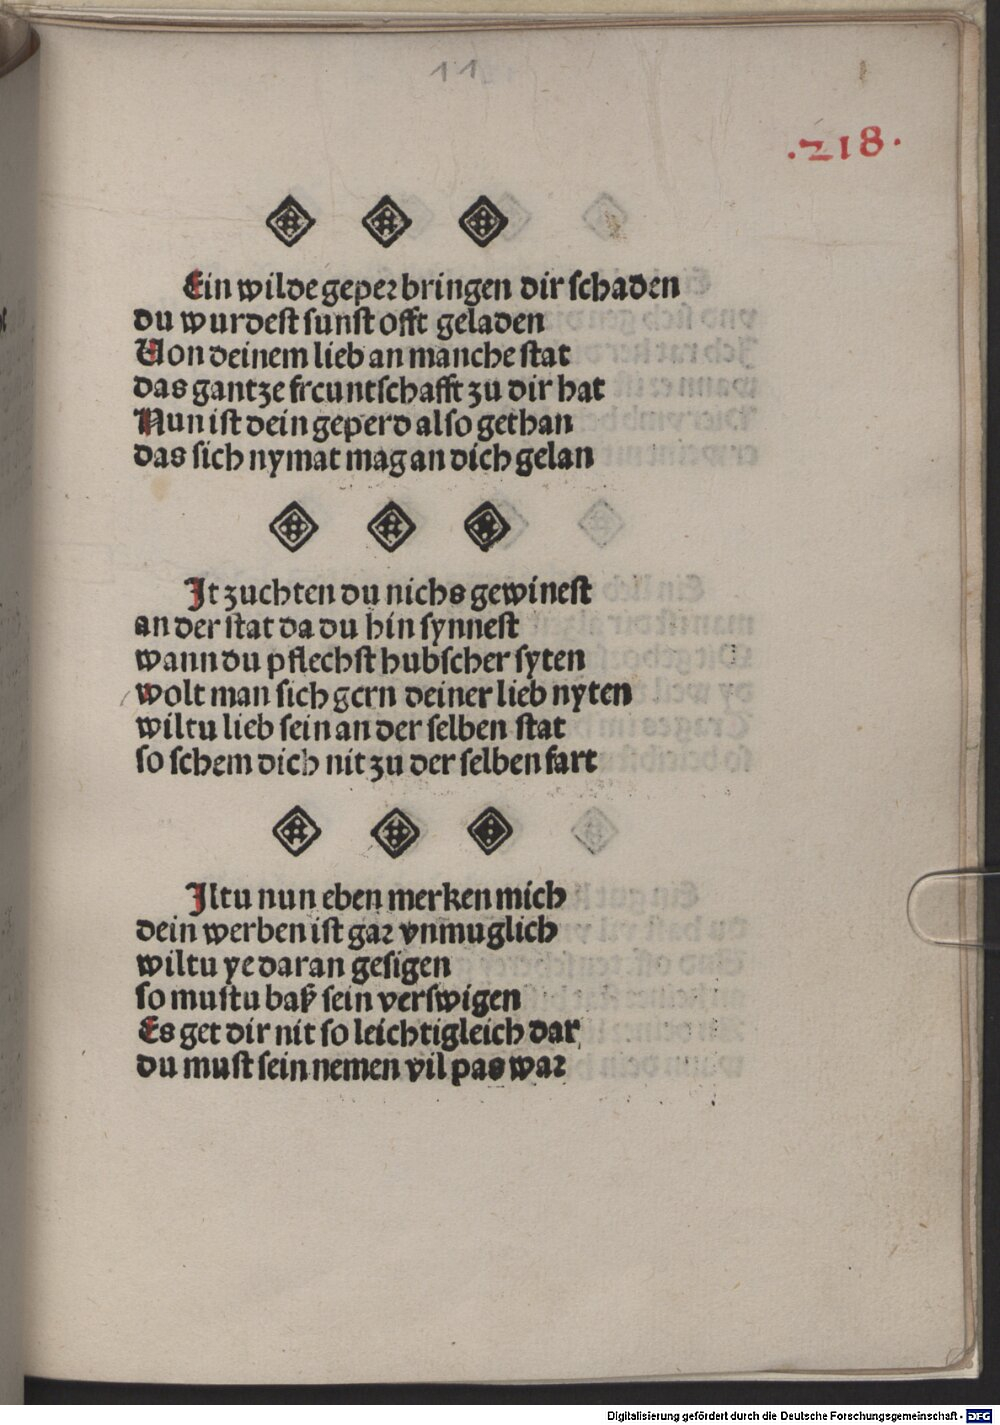 11
.218.
Ein wilde geper bringen dir schaden
du wurdest sunst offt geladen
Von deinem lieb an manche stat
das gantze freuntschafft zu dir hat
Nun ist dein geperd also gethan
das sich nymat mag an dich gelan
It zuchten du nichs gewinest
an der stat da du hin synnest
wann du pflechst hubscher syten
wolt man sich gern deiner lieb nyten
wiltu lieb sein an der selben stat
so schem dich nit zu der selben fart
Iltu nun eben merken mich
dein werben ist gar vnmuglich
wiltu ye daran gesigen
so mustu baß sein verswigen
Es get dir nit so leichtigleich dar
du must sein nemen vil pas war
Digitalisierung gefördert durch die Deutsche Forschungsgemeinschaft - DFG